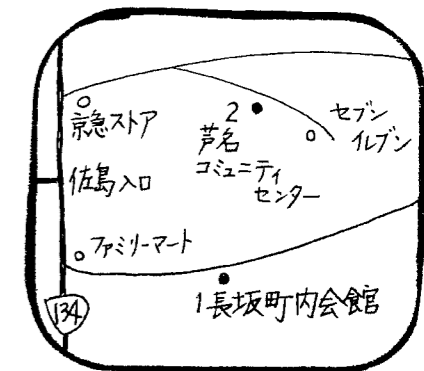 京急ストア
2
芦名
コミュニティ
センター
セブン
イレブン
佐島入口
ファミリーマート
134
1 長坂町内会館